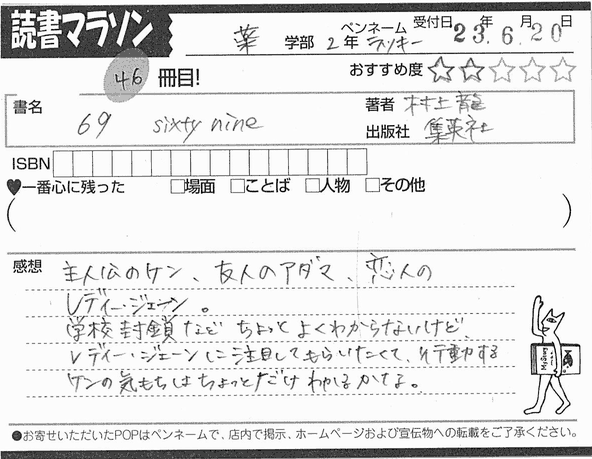 読書マラソン
薬 学部 2年 ペンネーム ラッキー 受付日 23年 6月 20日
46 冊目! おすすめ度 ☆☆☆☆☆
書名 69 sixty nine
著者 村上龍
出版社 集英社
ISBN
♥一番心に残った □場面 □ことば □人物 □その他
( )
感想 主人公のケン、友人のアダマ、恋人の
レディー・ジェーン。
学校封鎖など ちょっと よくわからないけど
レディー・ジェーンに注目してもらいたくて、行動する
ケンの気もちはちょっとだけ わかるかな。
●お寄せいただいたPOPはペンネームで、店内で掲示、ホームページおよび宣伝物への転載をご了承ください。